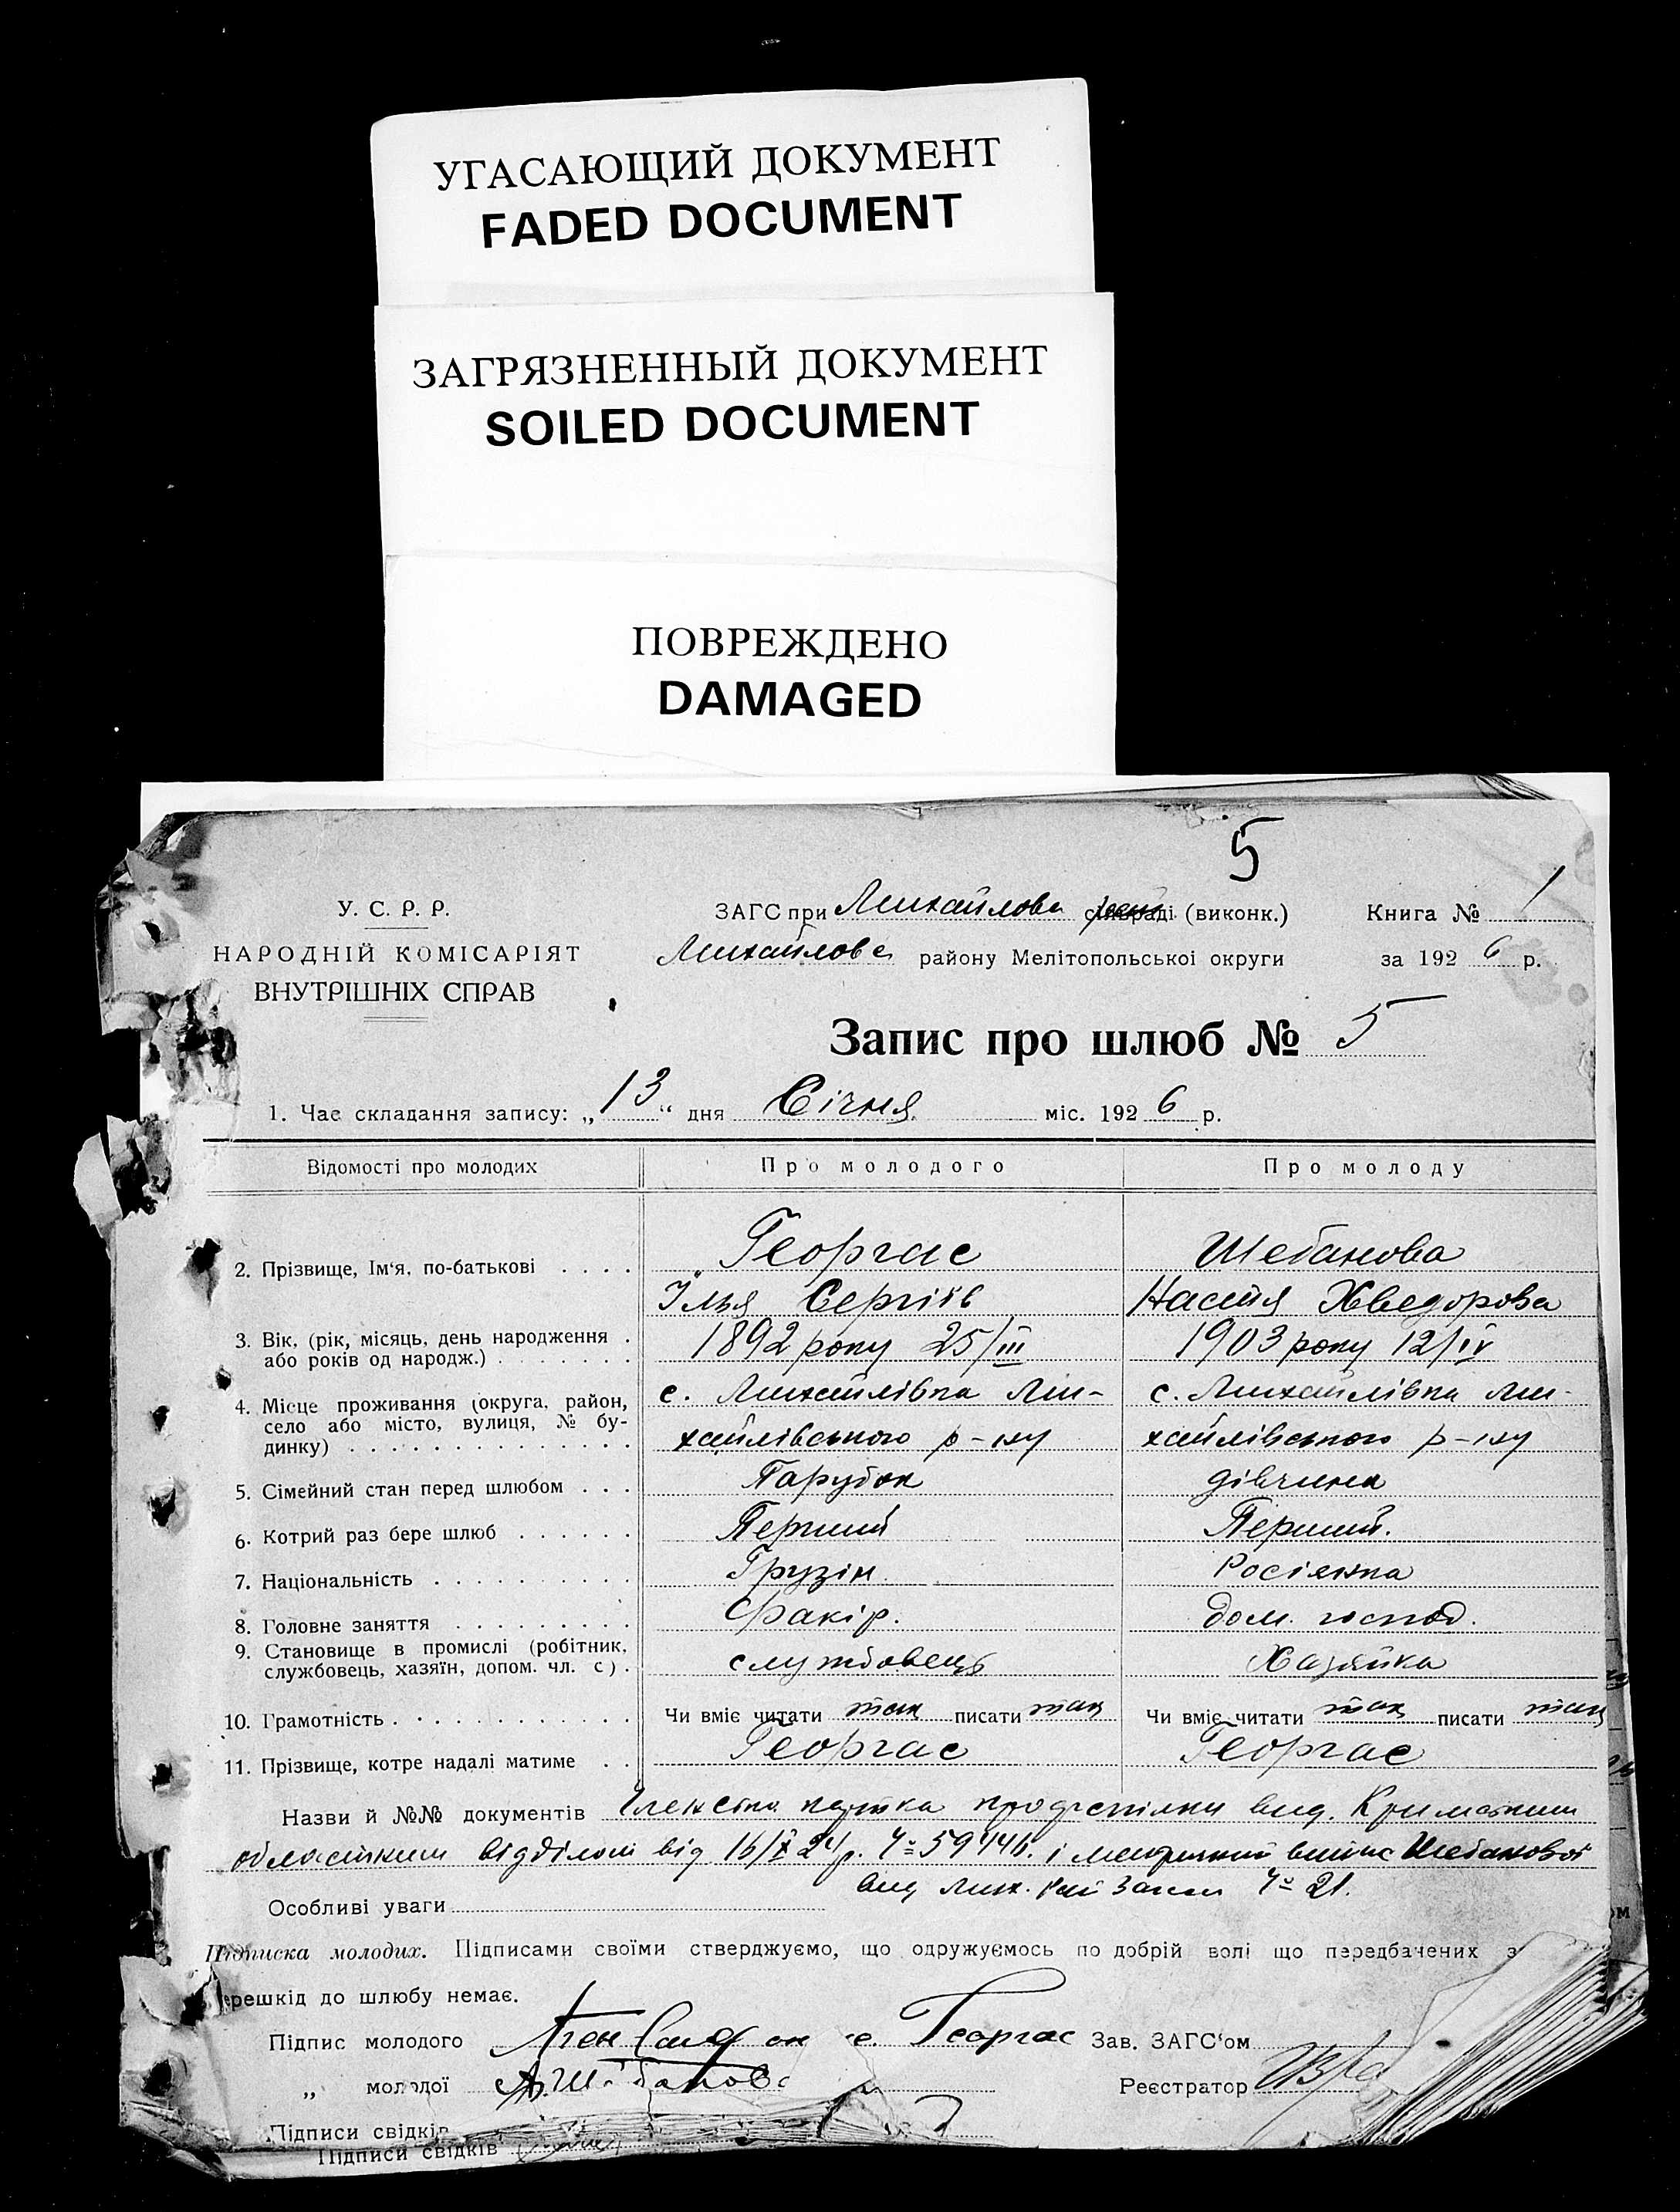 УГАСАЮЩИЙ ДОКУМЕНТ
FADED DOCUMENT
ЗАГРЯЗНЕННЫЙ ДОКУМЕНТ
SOILED DOCUMENT
ПОВРЕЖДЕНО
DAMAGED
5
У. С. Р. Р.
НАРОДНІЙ КОМІСАРІЯТ
ВНУТРІШНІХ СПРАВ
ЗАГС при Михайлов. (виконк.) Книга № 1
Михайлов. району Мелітопольської округи за 1926 р.
Запис про шлюб № 5
1. Час складання запису: „13“ дня Січня міс. 1926 р.
Відомості про молодих Про молодого Про молоду
2. Прізвище, Ім‘я, по-батькові Георгас Шебанова
Ілья Сергіїв Настя Хведорова
3. Вік, (рік, місяць, день народження або років од народж.) 1892 року 25/III 1903 року 12/IV
4. Місце проживання (округа, район, село або місто, вулиця, № будинку) с. Михайлівка Ми- с. Михайлівка Ми-
хайлівського р-ну хайлівського р-ну
5. Сімейний стан перед шлюбом Парубок дівчина
6. Котрий раз бере шлюб Перший Перший.
7. Національність Грузін. Росіянка
8. Головне заняття Факір. дом. господ.
9. Становище в промислі (робітник, службовець, хазяїн, допом. чл. с). службовець Хазяйка
10. Грамотність Чи вміє читати так писати так Чи вміє читати так писати так
11. Прізвище, котре надалі матиме Георгас Георгас
Назви й №№ документів Членська картка профспілки вид. Кримським
обласним відділом від 16/X 24 р. № 59446. і метричний випис Шебанової
вид. Мих. № 21.
Особливі уваги
Підписка молодих. Підписами своїми стверджуємо, що одружуємось по добрій волі що передбачених з
ерешкід до шлюбу немає.
Підпис молодого Георгас Зав. ЗАГС‘ом
„ молодої А. Шебанова Реєстратор
Підписи свідків
Підписи свідків